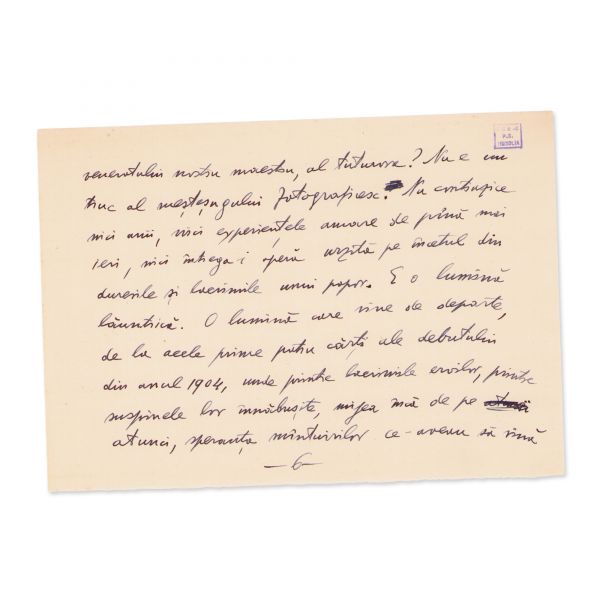 P.S.
veneratului nostru maestru, al tuturora? Nu e un
truc al meșteșugului fotografiesc. Nu contrazice
nici anii, nici experiențele amare de până mai
ieri, nici întrega-i operă urzită pe încetul din
durerile și lacrimile unui popor. E o lumină
lăuntrică. O lumină care vine de departe,
de la acele prime patru cărți ale debutului
din anul 1904, unde printre lacrimile eroilor, printre
suspinele lor înnăbușite, mijea încă de pe
atunci, speranța mântuirilor ce-aveau să vină
—6—